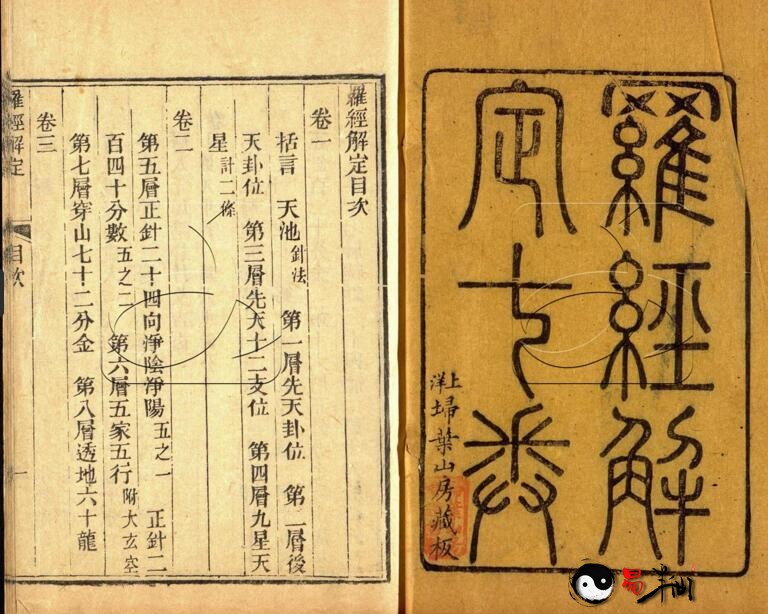 羅經解
定七卷
上洋埽葉山房藏板
羅經解定目次
卷一
括言 天池針法 第一層先天卦位 第二層後
天卦位 第三層先天十二支位 第四層九星天
星計二條
卷二
第五層正針二十四向淨陰淨陽五之一 正針二
百四十分數五之二 第六層五家五行附大玄空
第七層穿山七十二分金 第八層透地六十龍
卷三
羅經解定 目次 一
易